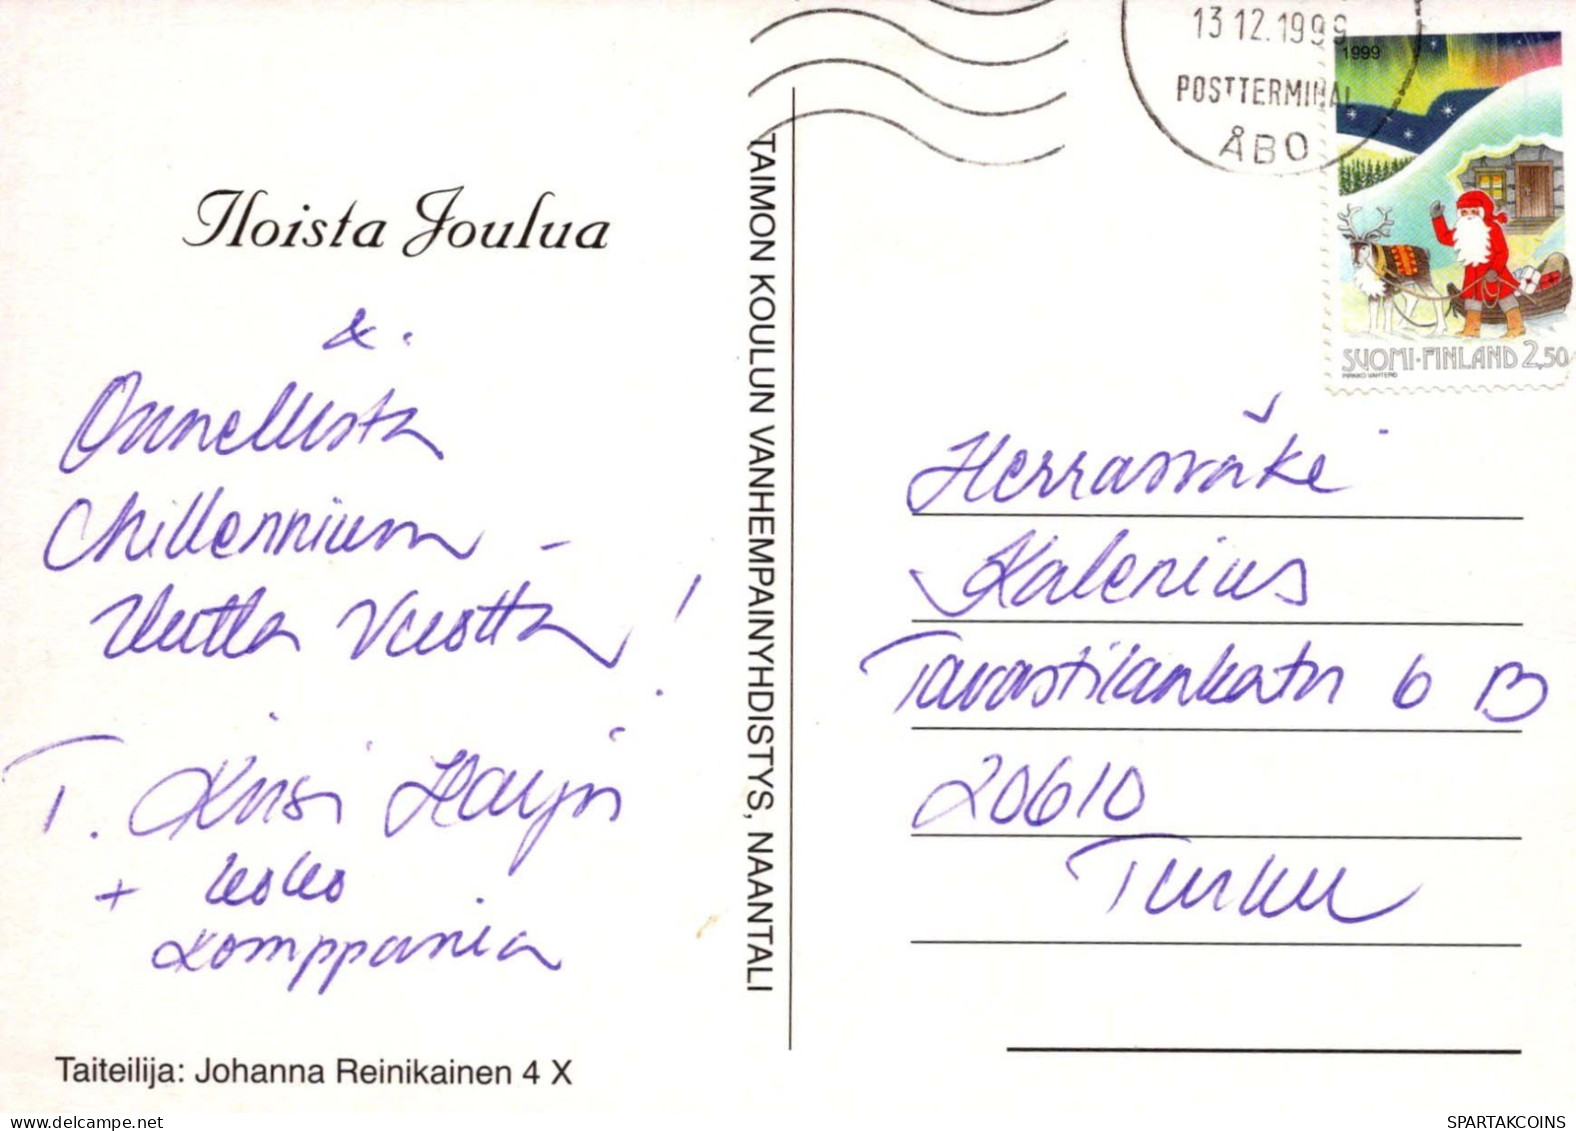 Iloista Joulua
&.
Onnellista
Millennium -
Uutta Vuotta!
T. Kirsi Harju
+ koko
komppania
Taiteilija: Johanna Reinikainen 4 X
TAIMON KOULUN VANHEMPAINYHDISTYS, NAANTALI
13 12.1999
POSTTERMINAL
ÅBO
1999
SUOMI·FINLAND 2,50
PIRKKO VAHTERO
Herrasväki
Kalenius
Tavastilankatu 6 B
20610
Turku
delcampe.net
SPARTAKCOINS